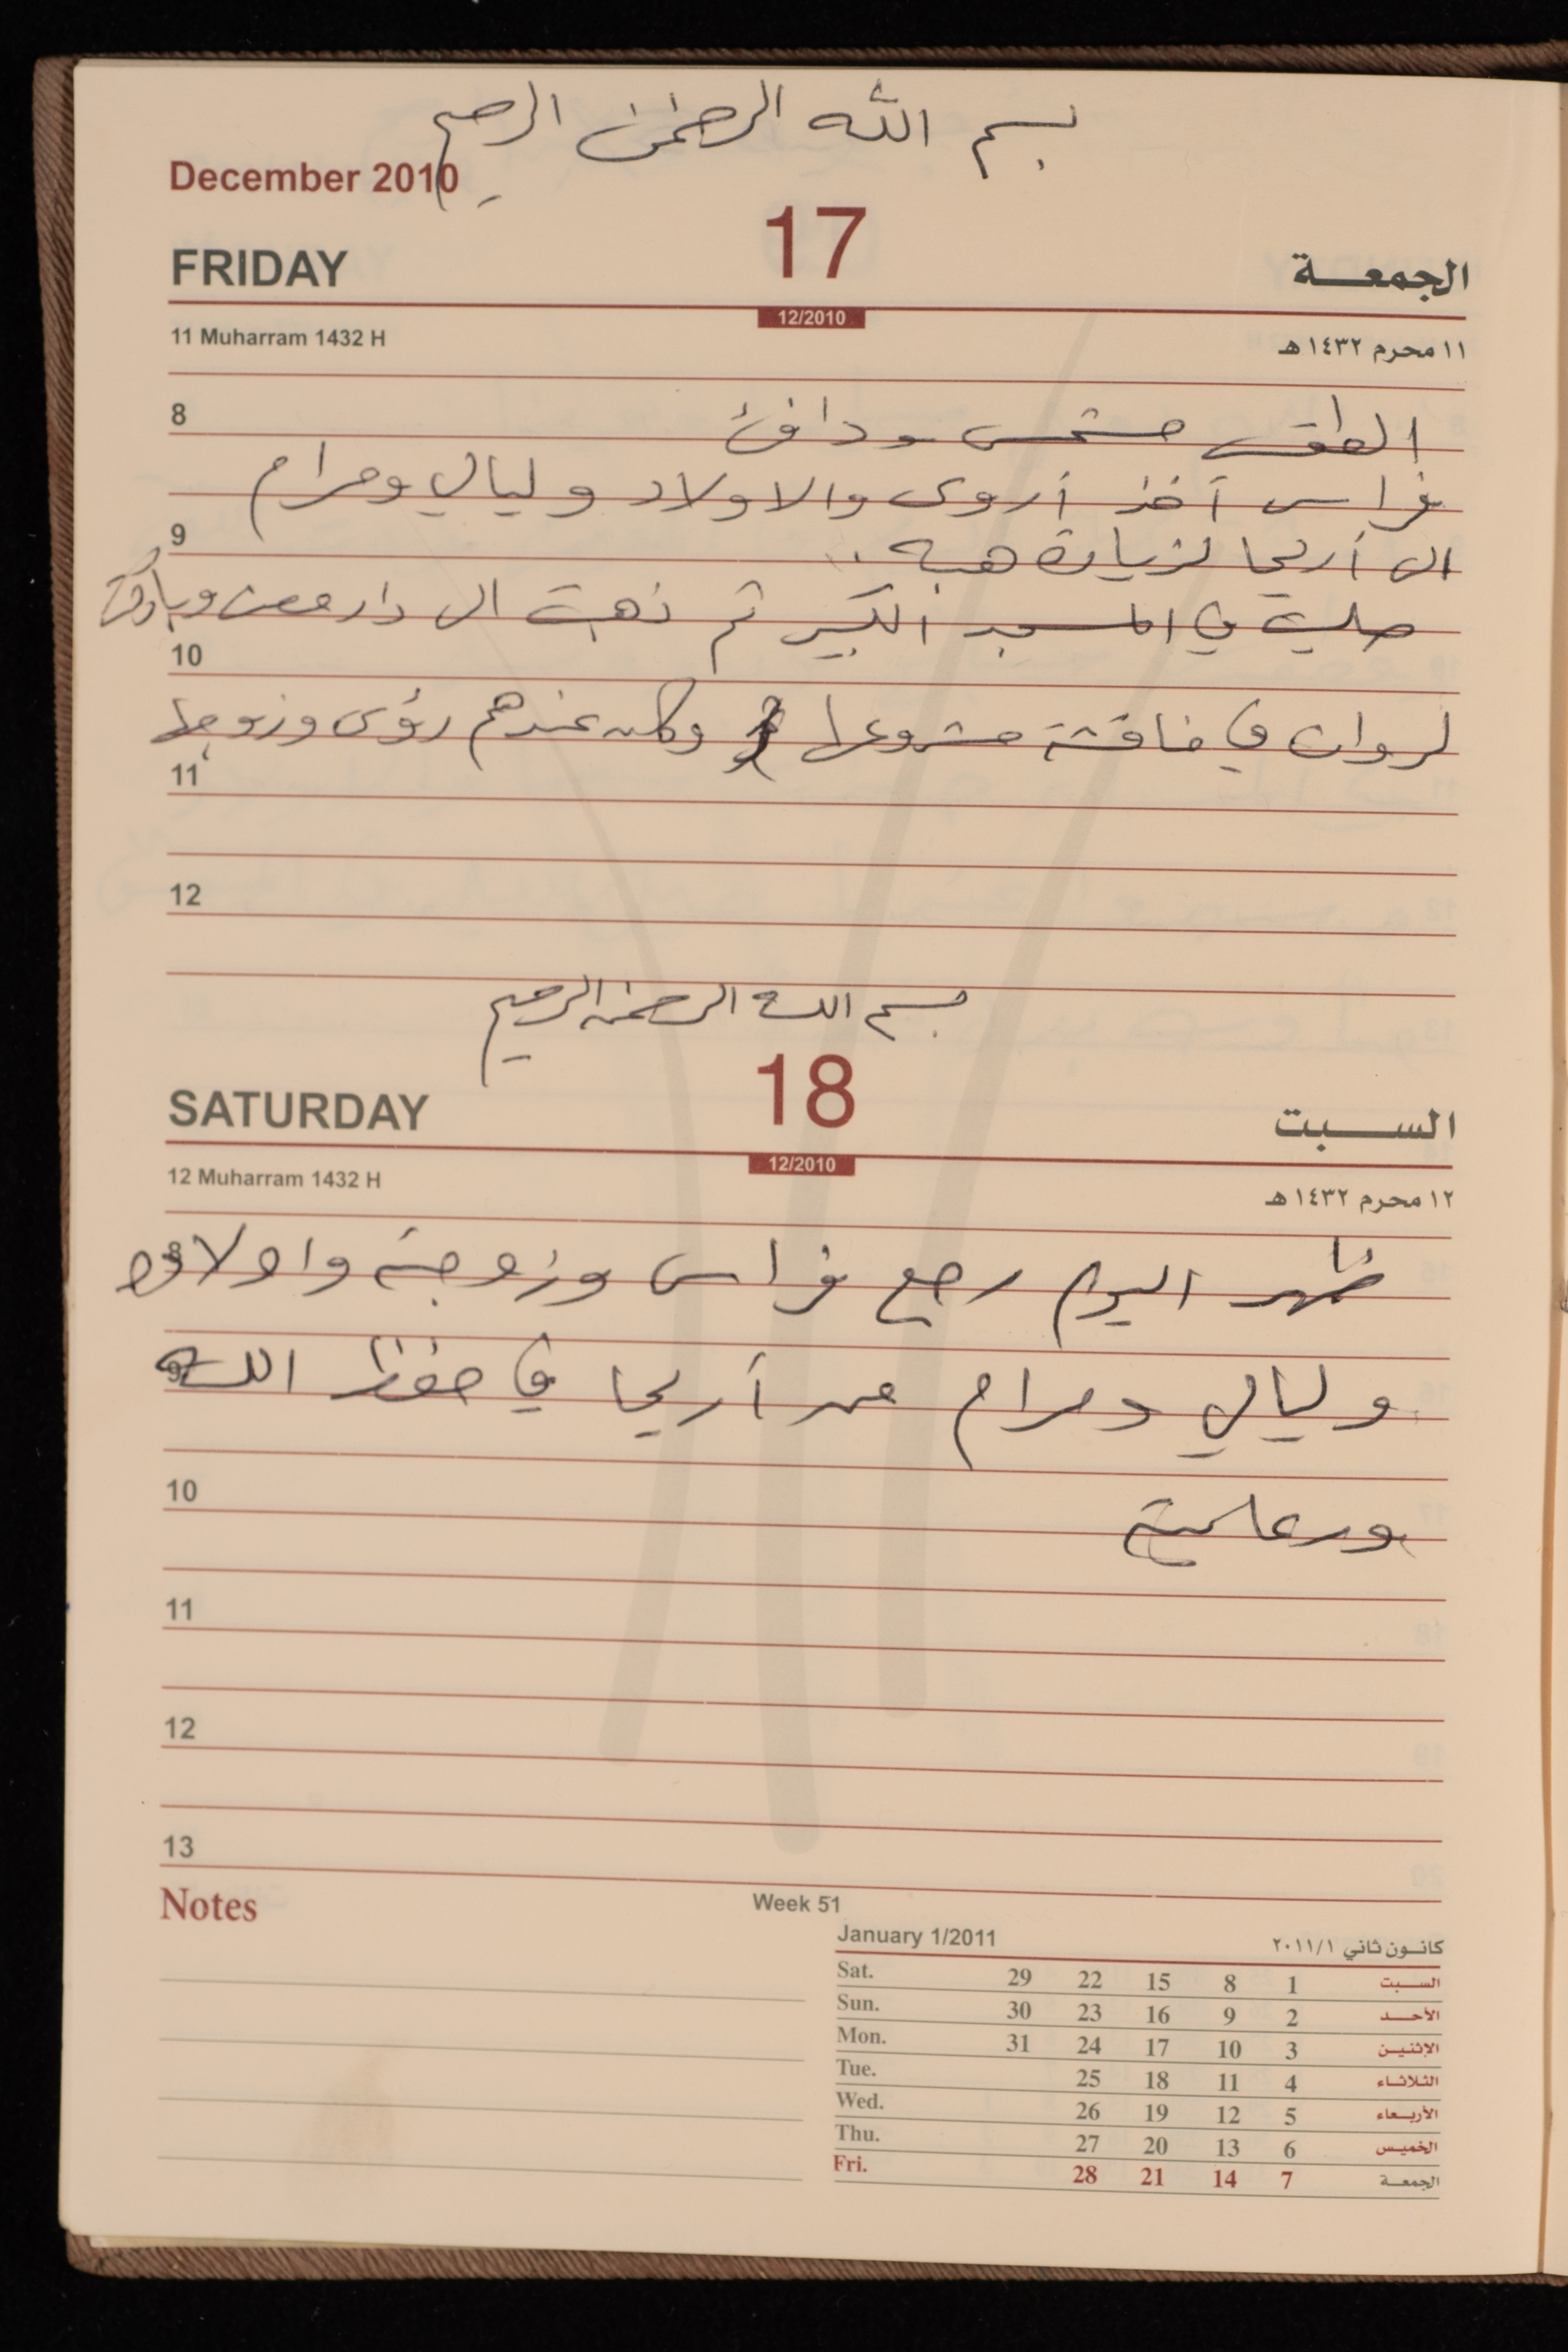 بسم الله الرحمن الرحيم
December 2010
FRIDAY 17 الجمعة
12/2010
11 Muharram 1432 H ١١ محرم ١٤٣٢ هـ
8 الطقس مشمس ودافئ
فراس أخذ أروى والاولاد وليالي ومرام
9 الى أريحا لزيارة هبه ..
صليت في المسجد الكبير ثم ذهبت الى دار معن وباركت
10
لروان في مناقشة مشروعها وكان عندهم رؤى وزوجها
11
12
بسم الله الرحمن الرحيم
SATURDAY 18 السبت
12/2010
12 Muharram 1432 H ١٢ محرم ١٤٣٢ هـ
8 ظهر اليوم رجع فراس وزوجته واولاده
9 وليالي ومرام من أريحا في حفظ الله
10 ورعايته
11
12
13
Notes Week 51
January 1/2011 كانون ثاني ٢٠١١/١
Sat. 29 22 15 8 1 السبت
Sun. 30 23 16 9 2 الأحد
Mon. 31 24 17 10 3 الإثنين
Tue. 25 18 11 4 الثلاثاء
Wed. 26 19 12 5 الأربعاء
Thu. 27 20 13 6 الخميس
Fri. 28 21 14 7 الجمعة